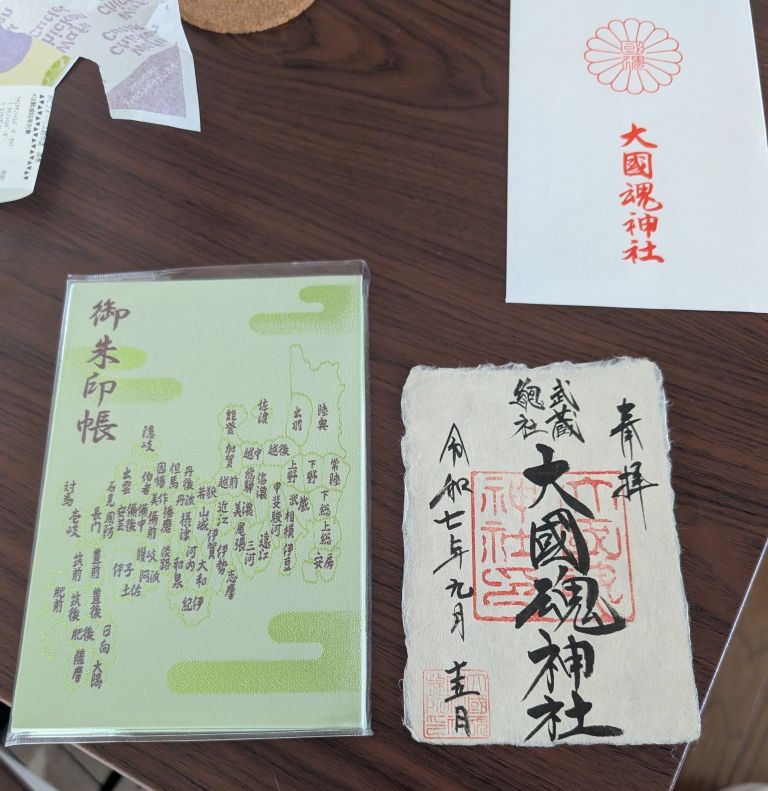 大國魂神社
御朱印帳
陸奥
出羽
佐渡
能登
加賀
越中
越後
隠岐
常陸
下野
上野
下総
上総
安房
武蔵
相模
伊豆
甲斐
駿河
信濃
飛騨
遠江
三河
尾張
美濃
越前
近江
伊賀
伊勢
志摩
若狭
山城
大和
紀伊
丹後
丹波
摂津
河内
和泉
但馬
播磨
淡路
因幡
美作
備前
伯耆
備中
備後
出雲
安芸
石見
周防
長門
讃岐
阿波
伊予
土佐
対馬
壱岐
豊前
豊後
筑前
筑後
肥前
肥後
日向
大隅
薩摩
奉拝
武蔵
總社
大國魂神社
令和七年九月